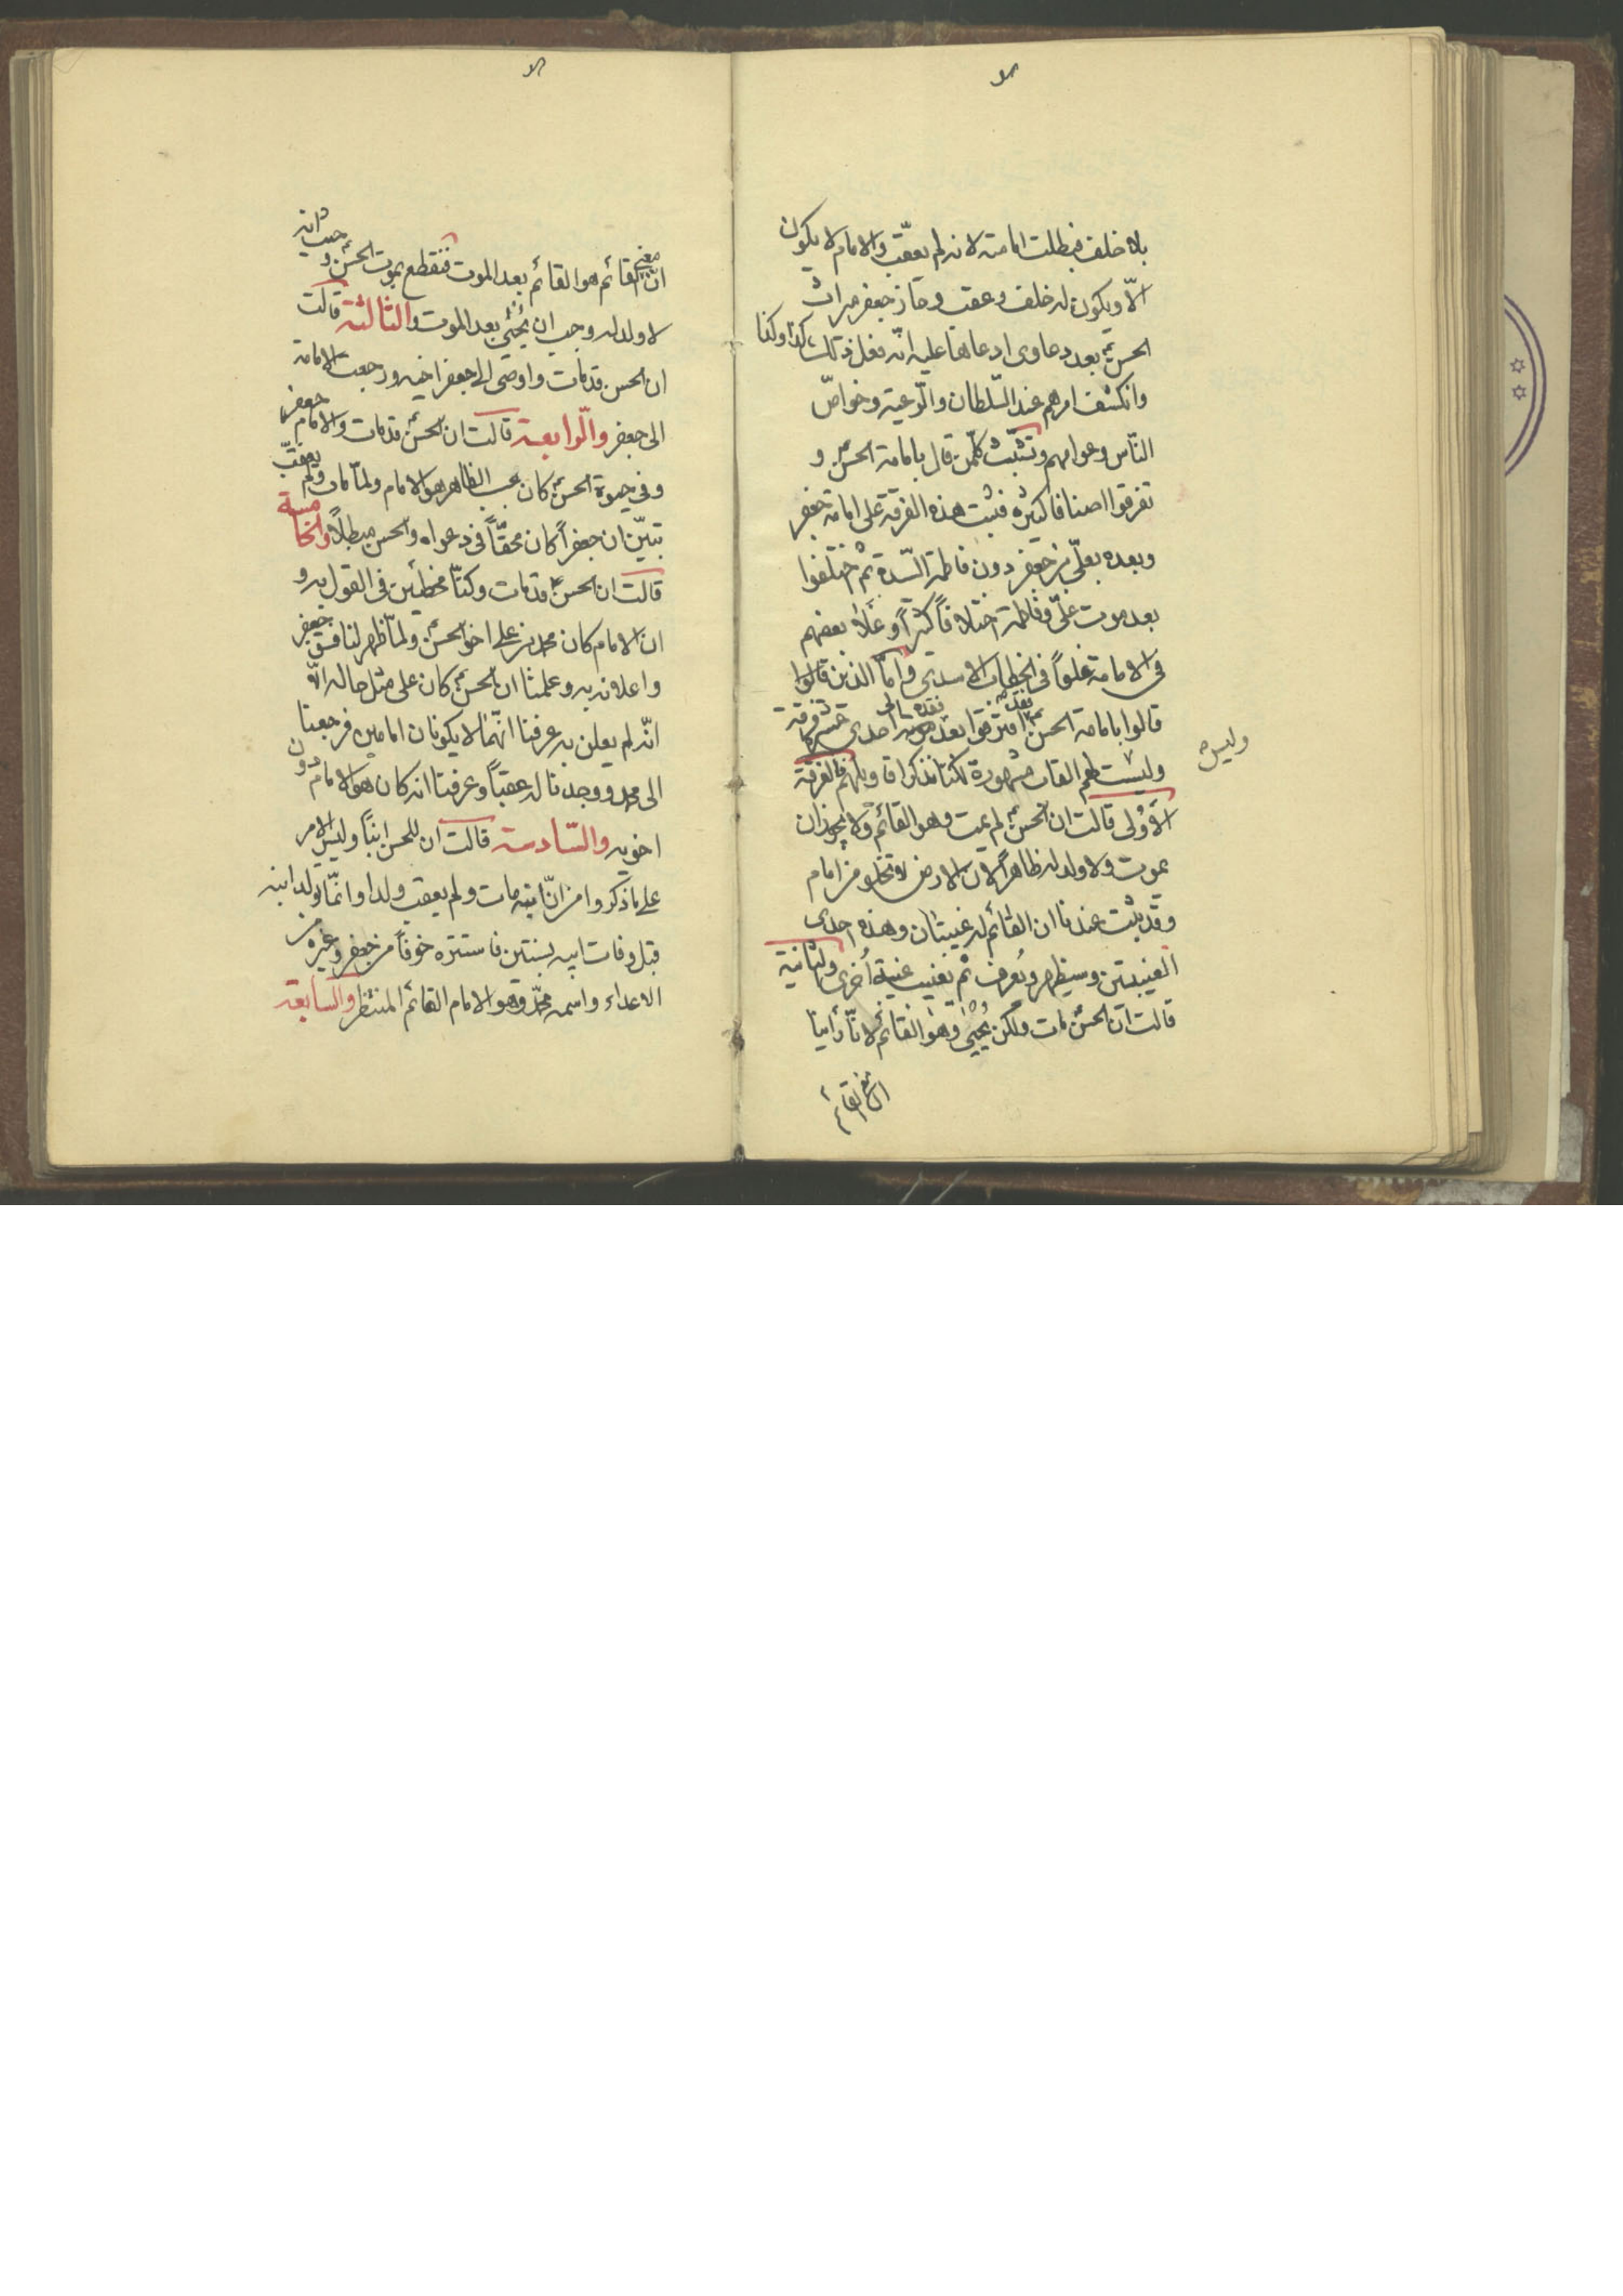 بلا خلف فبطلت امامته لانه لم يعقّب والامام لا يكون
الّا ويكون له خلف وعقب وحاز جعفر ميراث
الحسن بعد دعاوى ادعاها عليه انّه فعل ذلك كذا وكذا
وانكشف امرهم عند السّلطان والرّعية وخواصّ
النّاس وعوامهم وتشتّت كلمة من قال بامامة الحسن و
تفرقوا اصنافا كثيرة فثبت هذه الفرقة على امامة جعفر
وبعده بعلّي بن جعفر دون فاطمة السّيدة ثم اختلفوا
بعد موت علّي وفاطمة اختلافاً كثيراً وغلا بعضهم
فى الامامة غلواً فى الخطاب الاسدي وامّا الذين قالوا
قالوا بامامة الحسن افترقوا بعد موته احدى عشر فرقة
وليست لهم القاب مشهورة لكنا نذكر اقاويلهم فالفرقة
وليس
الأولى قالت ان الحسن لم يمت وهو القائم ولا يجوز ان
يموت ولا ولد له ظاهراً لان الارض لا تخلو من امام
وقد ثبت عندنا ان القائم له غيبتان وهذه احدى
الغيبتين وسيظهر ويُعرف ثم يغيب غيبة أخرى والثانية
قالت انّ الحسن مات ولكن يُحيى وهو القائم لانّا رأينا
ان معنى القائم
ان معنى القائم هو القائم بعد الموت فنقطع بموت الحسن وحيث انه
لا ولد له وجب ان يُحيَى بعد الموت والثالثة قالت
ان الحسن قد مات واوصى الى جعفر اخيه ورجعت الامامة
الى جعفر والرّابعة قالت ان الحسن قد مات والامام جعفر
وفى حيوة الحسن كان بحسب الظاهر هو الامام ولمّا مات ولم يعقّب
تبيّن ان جعفراً كان محقّاً فى دعواه والحسن مبطلاً والخامسة
قالت ان الحسن قد مات وكنّا مخطئين فى القول به و
ان الامام كان محمد بن على اخو الحسن ولمّا ظهر لنا فسق جعفر
واعلانه به وعلمنا ان الحسن كان على مثل حاله الّا
انّه لم يعلن به عرفنا انّهما لا يكونان امامين فرجعنا
الى محمد ووجدنا له عقباً وعرفنا انه كان هو الامام دون
اخويه والسّادسة قالت ان للحسن ابنًا وليس الامر
على ما ذكروا من انّه مات ولم يعقب ولدا وانمّا ولد ابنه
قبل وفات ابيه بسنتين فاستتره خوفاً من جعفر وغيره من
الاعداء واسمه محمّد وهو الامام القائم المنتظر والسابعة